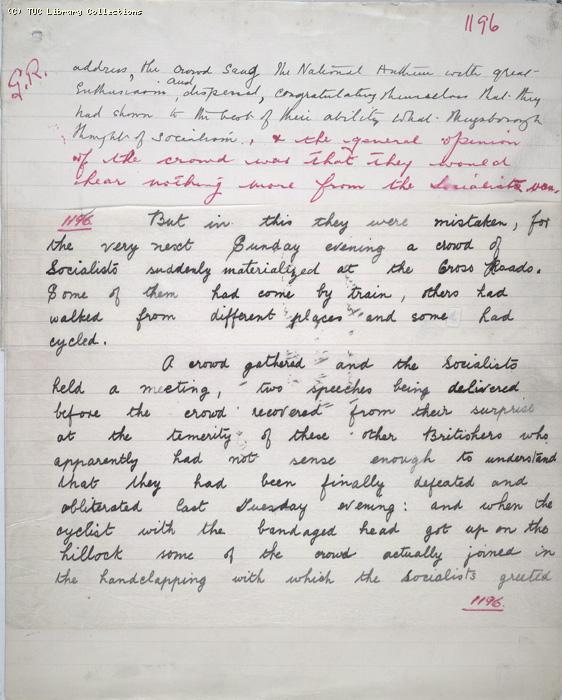 (C) TUC Library Collections
1196
G.R.
address, the crowd sang the National Anthem with great
Enthusiasm and dispersed, congratulating themselves that they
had shown to the best of their ability what Mugsborough
thought of Socialism, & the general opinion
of the crowd was that they would
hear nothing more from the Socialists van.
1196 But in this they were mistaken, for
the very next Sunday evening a crowd of
Socialists suddenly materialized at the Cross Roads.
Some of them had come by train, others had
walked from different places and some had
cycled.
A crowd gathered and the Socialists
held a meeting, two speeches being delivered
before the crowd recovered from their surprise
at the temerity of these other Britishers who
apparently had not sense enough to understand
that they had been finally defeated and
obliterated last Tuesday evening: and when the
cyclist with the bandaged head got up on the
hillock some of the crowd actually joined in
the handclapping with which the Socialists greeted
1196.